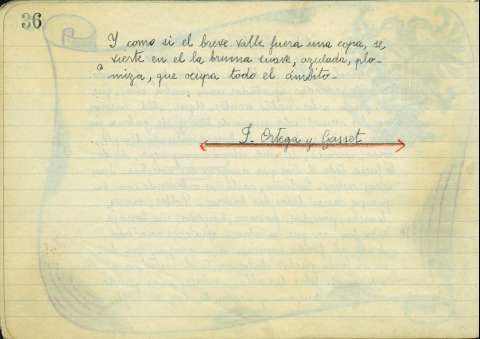 36
Y como si el breve valle fuera una copa, se
vierte en el la bruma suave, azulada, plo-
miza, que ocupa todo el ámbito-
J. Ortega y Gasset